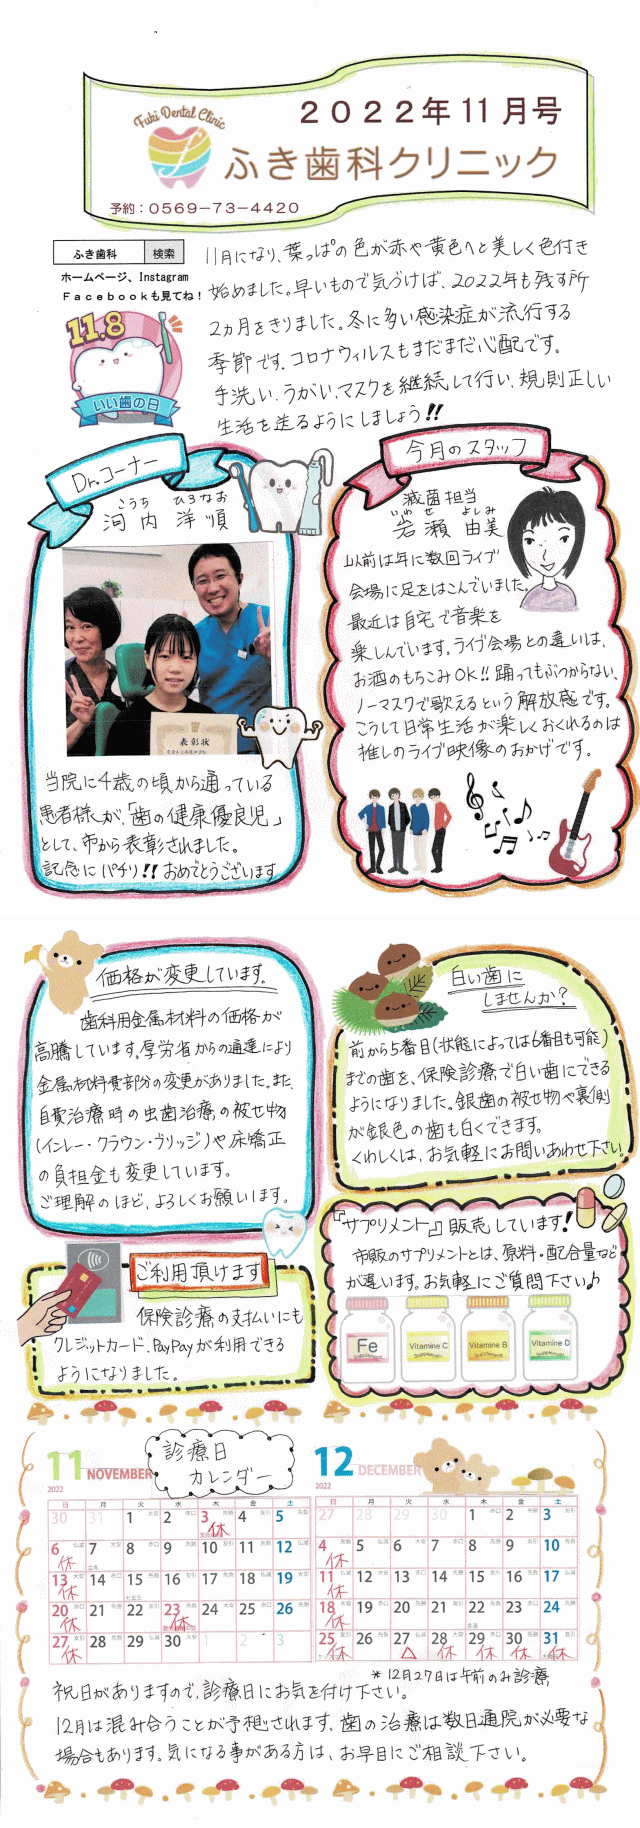 Fuki Dental Clinic
2022年11月号
ふき歯科クリニック
予約：0569-73-4420
ふき歯科 検索
ホームページ、Instagram
Facebookも見てね！
11.8
いい歯の日
11月になり、葉っぱの色が赤や黄色へと美しく色付き
始めました。早いもので気づけば、2022年も残す所
2ヵ月をきりました。冬に多い感染症が流行する
季節です。コロナウィルスもまだまだ心配です。
手洗い、うがい、マスクを継続して行い、規則正しい
生活を送るようにしましょう!!
Dr.コーナー
こうち ひろなお
河内 洋順
表彰状
当院に4歳の頃から通っている
患者様が、「歯の健康優良児」
として、市から表彰されました。
記念にパチリ!!おめでとうございます
今月のスタッフ
滅菌担当
いわせ よしみ
岩瀬 由美
以前は年に数回ライブ
会場に足をはこんでいました。
最近は自宅で音楽を
楽しんでいます。ライブ会場との違いは、
お酒のもちこみOK!!踊ってもぶつからない、
ノーマスクで歌えるという解放感です。
こうして日常生活が楽しくおくれるのは
推しのライブ映像のおかげです。
価格が変更しています。
歯科用金属材料の価格が
高騰しています。厚労省からの通達により
金属材料費部分の変更がありました。また、
自費治療時の虫歯治療の被せ物
(インレー・クラウン・ブリッジ)や床矯正
の負担金も変更しています。
ご理解のほど、よろしくお願いします。
白い歯に
しませんか？
前から5番目(状態によっては6番目も可能)
までの歯を、保険診療で白い歯にできる
ようになりました。銀歯の被せ物や裏側
が銀色の歯も白くできます。
くわしくは、お気軽にお問いあわせ下さい。
ご利用頂けます
保険診療の支払いにも
クレジットカード、PayPayが利用できる
ようになりました。
『サプリメント』販売しています！
市販のサプリメントとは、原料・配合量など
が違います。お気軽にご質問下さい♪
Fe Supplement
Vitamine C Supplement
Vitamine B Supplement
Vitamine D Supplement
診療日
カレンダー
11 NOVEMBER
2022
日 月 火 水 木 金 土
30 31 1 2 3 4 5
休
6 7 8 9 10 11 12
休
13 14 15 16 17 18 19
休
20 21 22 23 24 25 26
休 休
27 28 29 30 1 2 3
休
12 DECEMBER
2022
日 月 火 水 木 金 土
27 28 29 30 1 2 3
4 5 6 7 8 9 10
休
11 12 13 14 15 16 17
休
18 19 20 21 22 23 24
休
25 26 27 28 29 30 31
休 △ 休 休 休 休
*12月27日は午前のみ診療
祝日がありますので、診療日にお気を付け下さい。
12月は混み合うことが予想されます、歯の治療は数日通院が必要な
場合もあります。気になる事がある方は、お早目にご相談下さい。